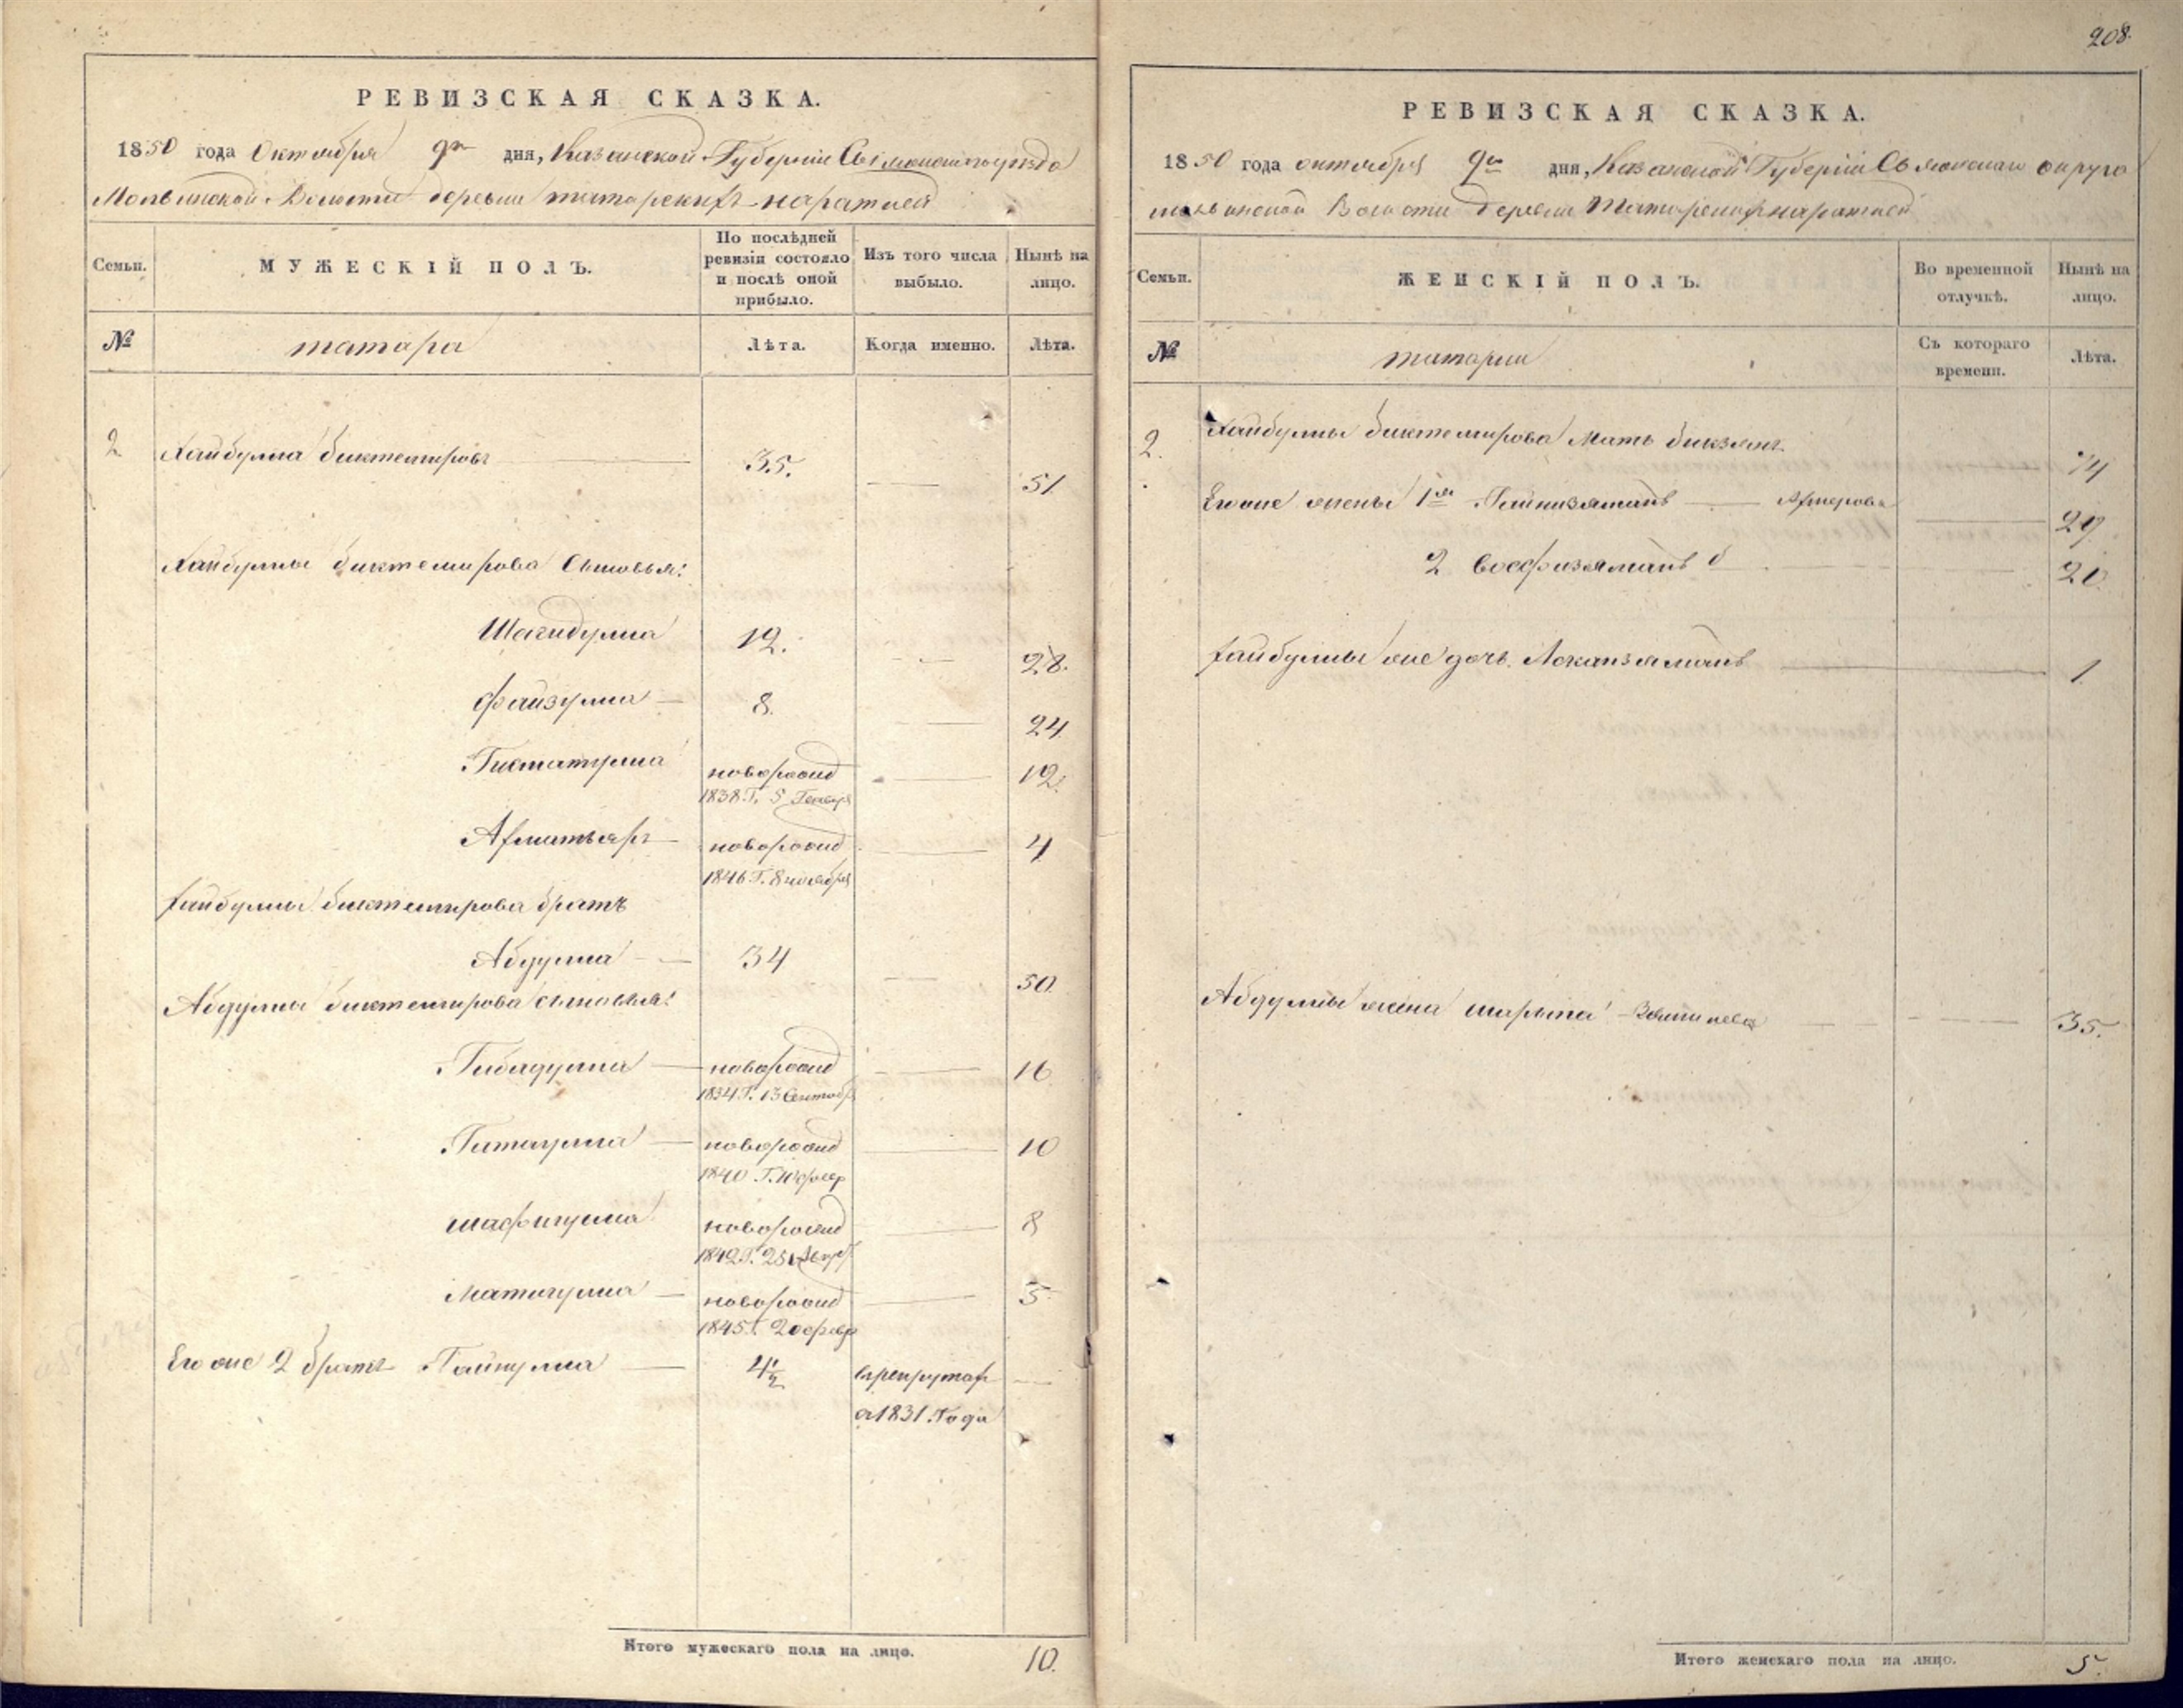 208.
РЕВИЗСКАЯ СКАЗКА.
1850 года Октября 9го дня, Казанской Губерніи
Волости деревни татарскихъ наратлей
Семьи.
МУЖЕСКІЙ ПОЛЪ.
По послѣдней ревизіи состояло и послѣ оной прибыло.
Изъ того числа выбыло.
Нынѣ на лицо.
№
татара
Лѣта.
Когда именно.
Лѣта.
2 Хайбулла биктемировъ 35. 51.
Хайбуллы биктемирова Сыновья:
Шагидулла 12. 28.
файзулла 8. 24
новорожд 12.
1838 Г. 5 Генвря
Ахматьяръ новорожд 4
1846 Г. 8 ноября
хайбуллы биктемирова братъ
Абдулла 34 50.
Абдуллы биктемирова сыновья:
Гибадулла новорожд 16
1834 Г. 13 Сентябр
новорожд 10
1840 Г. 10 февр
шафигулла новорожд 8
1842 Г. 25
новорожд 5
1845 Г. 20 февр
Его же 2 братъ Гайнулла 4½ врекрутах
с 1831 Года
Итого мужескаго пола на лицо. 10.
РЕВИЗСКАЯ СКАЗКА.
1850 года октября 9го дня, Казанской Губерніи округа
Волости деревни Татарскихнаратлей
Семьи.
ЖЕНСКІЙ ПОЛЪ.
Во временной отлучкѣ.
Нынѣ на лицо.
№
татарки
Съ котораго времени.
Лѣта.
2. Хайбуллы биктемирова Мать 74
Его же жены 1я 29
2 20.
хайбуллы же дочь 1
Абдуллы жена 35.
Итого женскаго пола на лицо. 5.